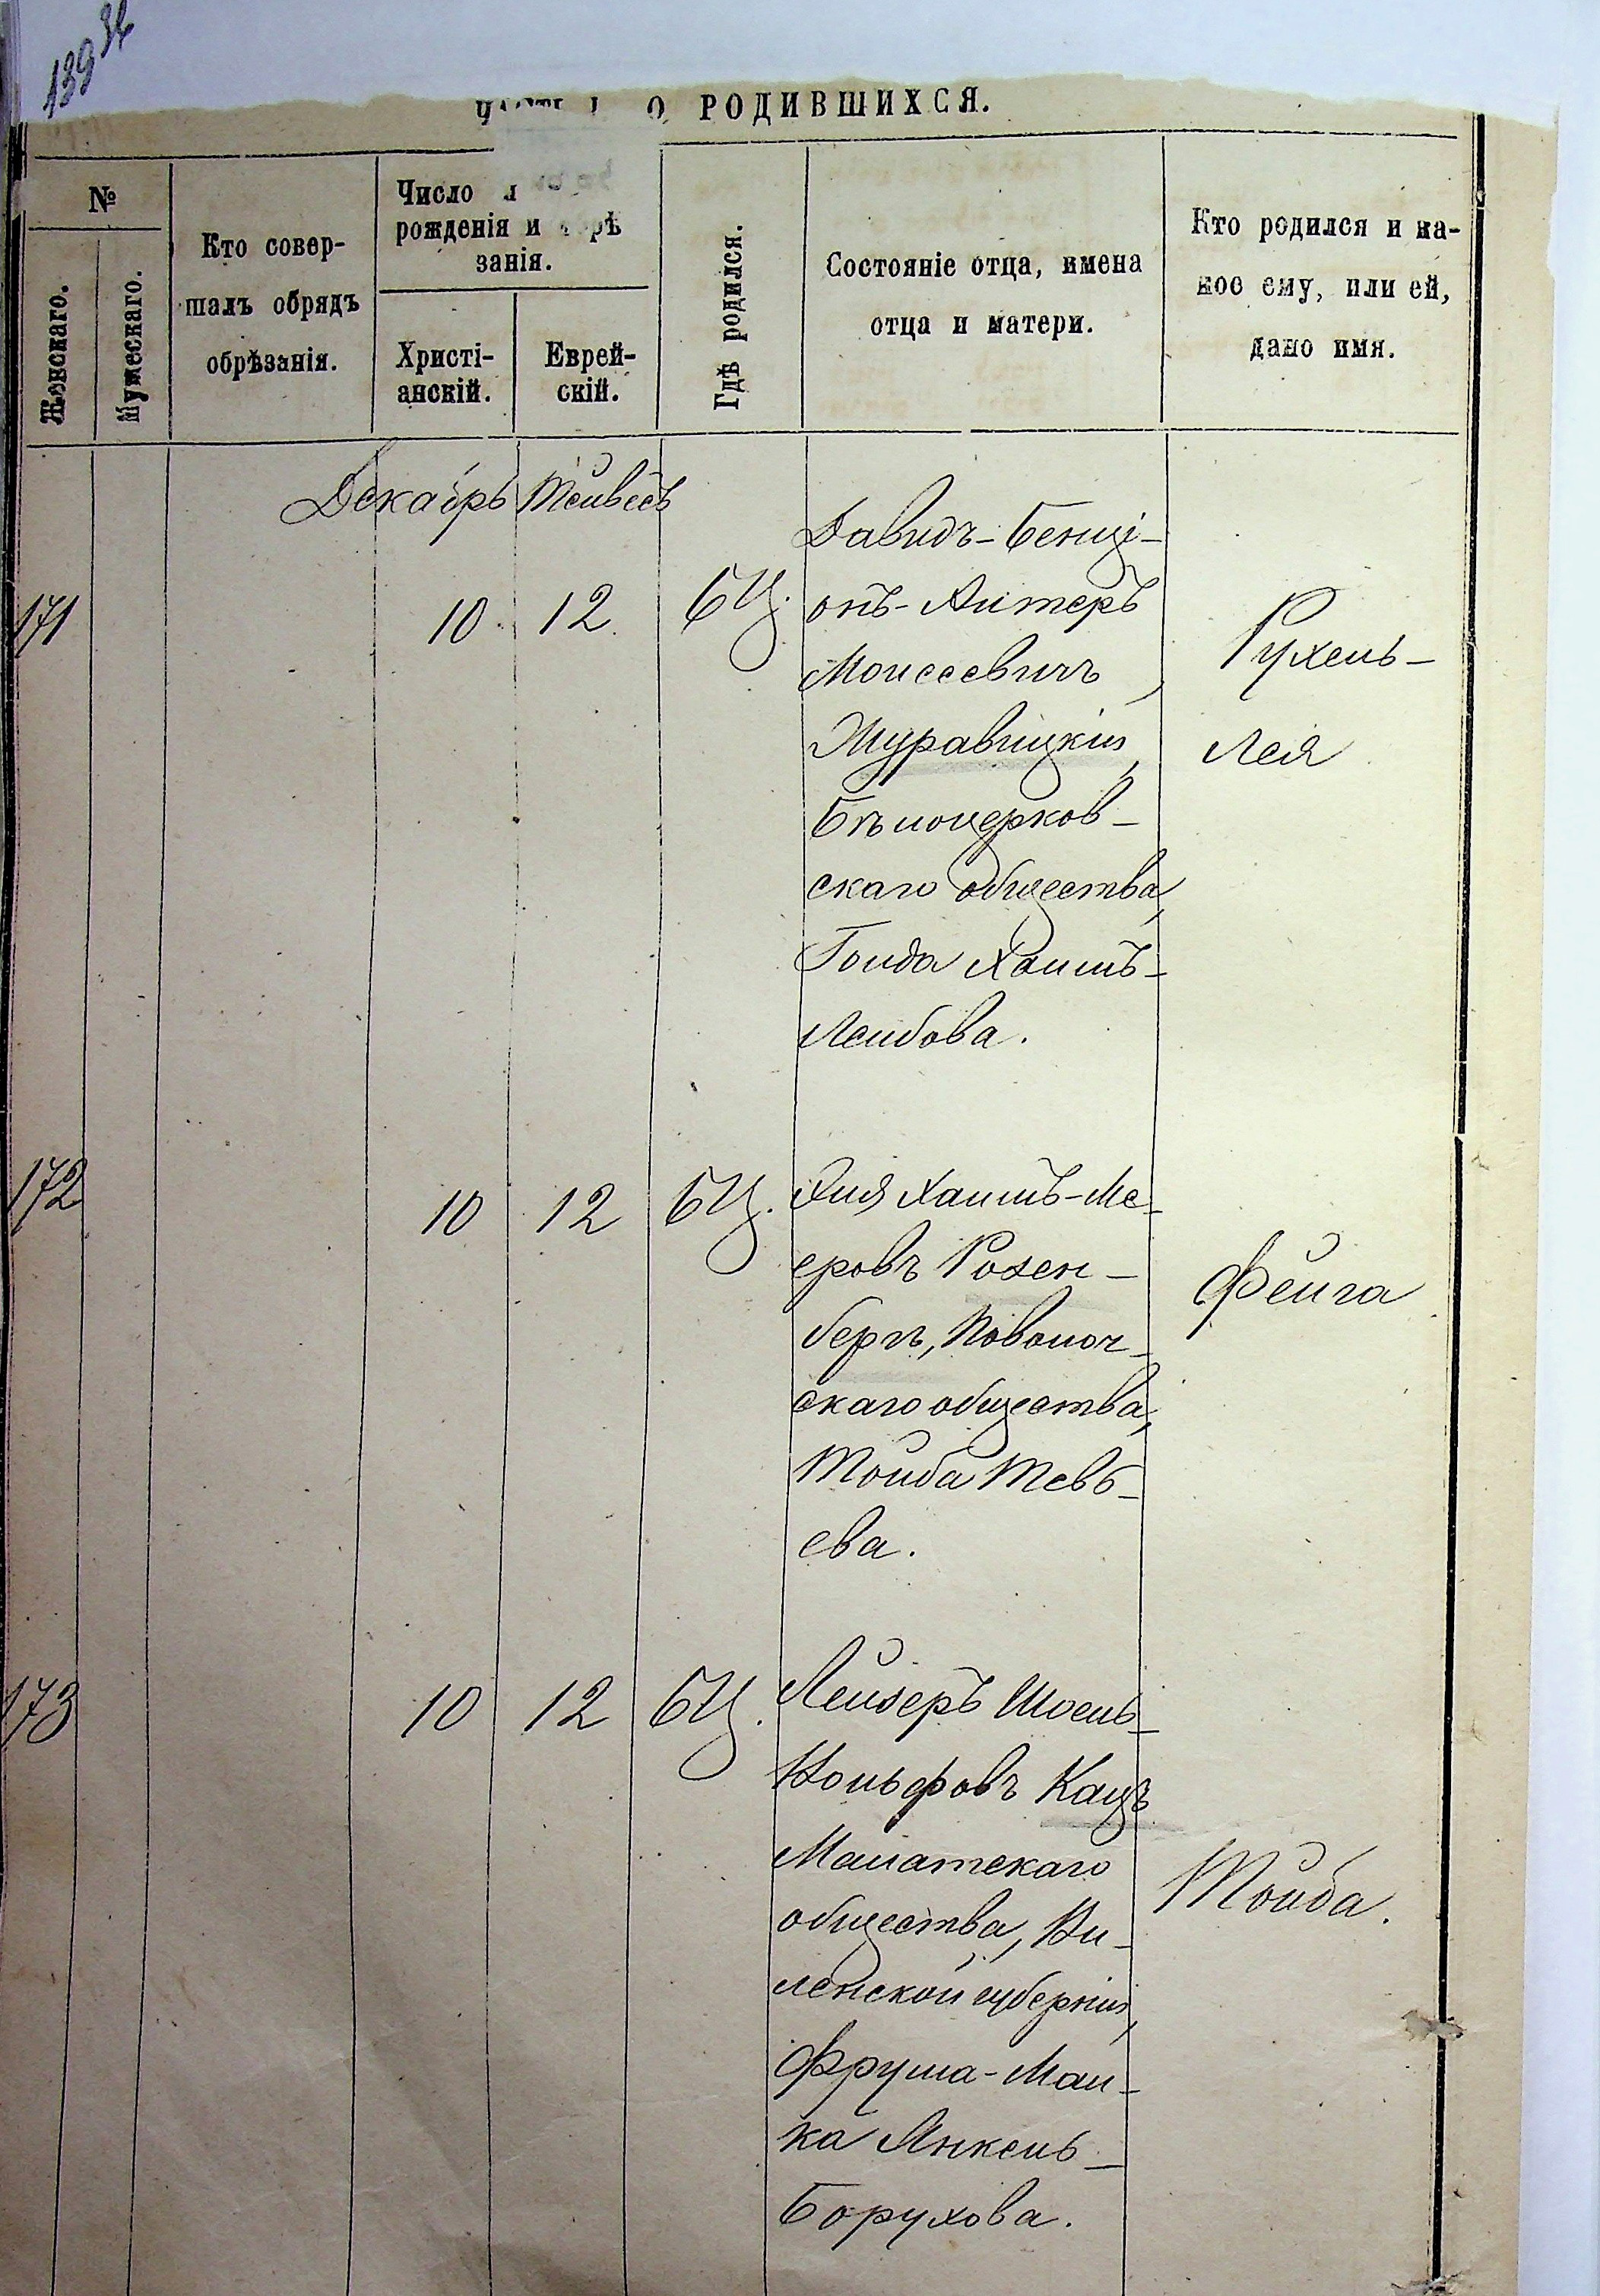 139 36
О РОДИВШИХСЯ.
№
Женскаго.
Мужескаго.
Кто совер-
шалъ обрядъ
обрѣзанія.
Число
рожденія и
занія.
Христі-
анскій.
Еврей-
скій.
Гдѣ родился.
Состояніе отца, имена
отца и матери.
Кто родился и ка-
кое ему, или ей,
дано имя.
Декабрь Тейвесъ
171 10 12 БЦ.
Давидъ-Бенці-
онъ-Алтеръ
Моисеевичъ
Журавицкій,
Бѣлоцерков-
скаго общества,
Голда Хаимъ-
Лейбова.
Рухель-
Лея
172 10 12 БЦ.
Эля Хаимъ-Ме-
еровъ Розен-
бергъ, Поволоч-
скаго общества,
Тойба Тевь-
ева.
Фейга
173 10 12 БЦ.
Лейзеръ Шоель-
Вольфовъ Кацъ
Малатскаго
общества, Ви-
ленской губерніи,
Фрума-Мал-
ка Янкель-
Борухова.
Тойба.